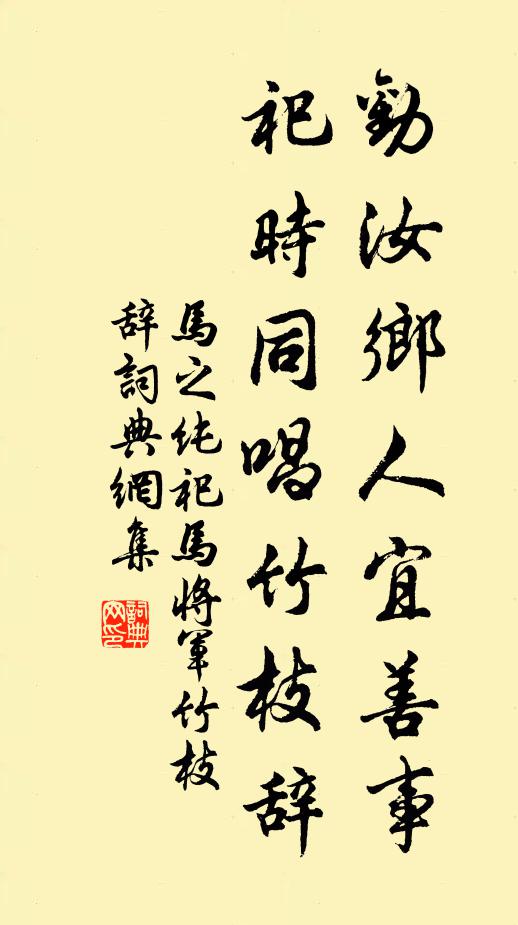 勸汝鄉人宜善事
祀時同唱竹枝辞
馬之纯祀馬將軍竹枝
辞詞典網集
詞典
网印